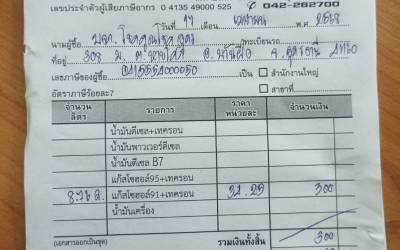 เลขประจำตัวผู้เสียภาษีอากร 0 4135 49000 525 042-282700
วันที่ 17 เดือน เมษายน พ.ศ. 2568
นามผู้ซื้อ ทะเบียนรถ
ที่อยู่ 308 ม. ต. อ. บ้านผือ จ. อุดรธานี 41160
เลขภาษีของผู้ซื้อ 0415554000050 เป็น สำนักงานใหญ่
อัตราภาษีร้อยละ7 สาขาที่
จำนวนลิตร รายการ ราคาหน่วยละ จำนวนเงิน
น้ำมันดีเซล+เทครอน
น้ำมันพาวเวอร์ดีเซล
น้ำมันดีเซล B7
แก๊สโซฮอล์95+เทครอน
แก๊สโซฮอล์91+เทครอน 300
น้ำมันเครื่อง
(เอกสารออกเป็นชุด) รวมเงินทั้งสิ้น 300